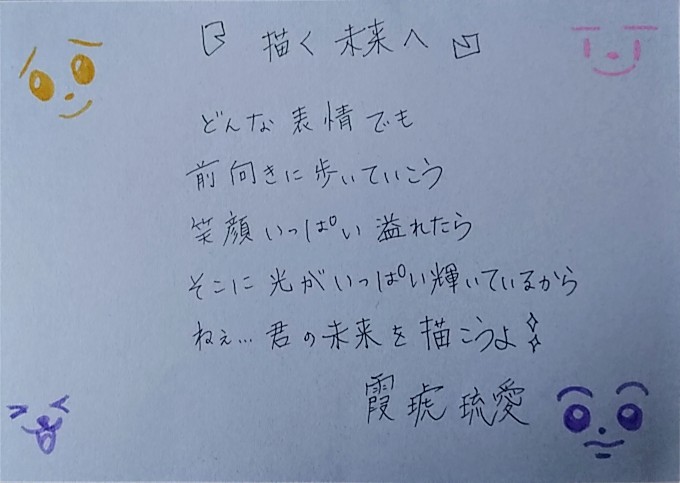 『 描く未来へ 』
どんな表情でも
前向きに歩いていこう
笑顔いっぱい溢れたら
そこに光がいっぱい輝いているから
ねぇ…君の未来を描こうよ
霞琥琉愛